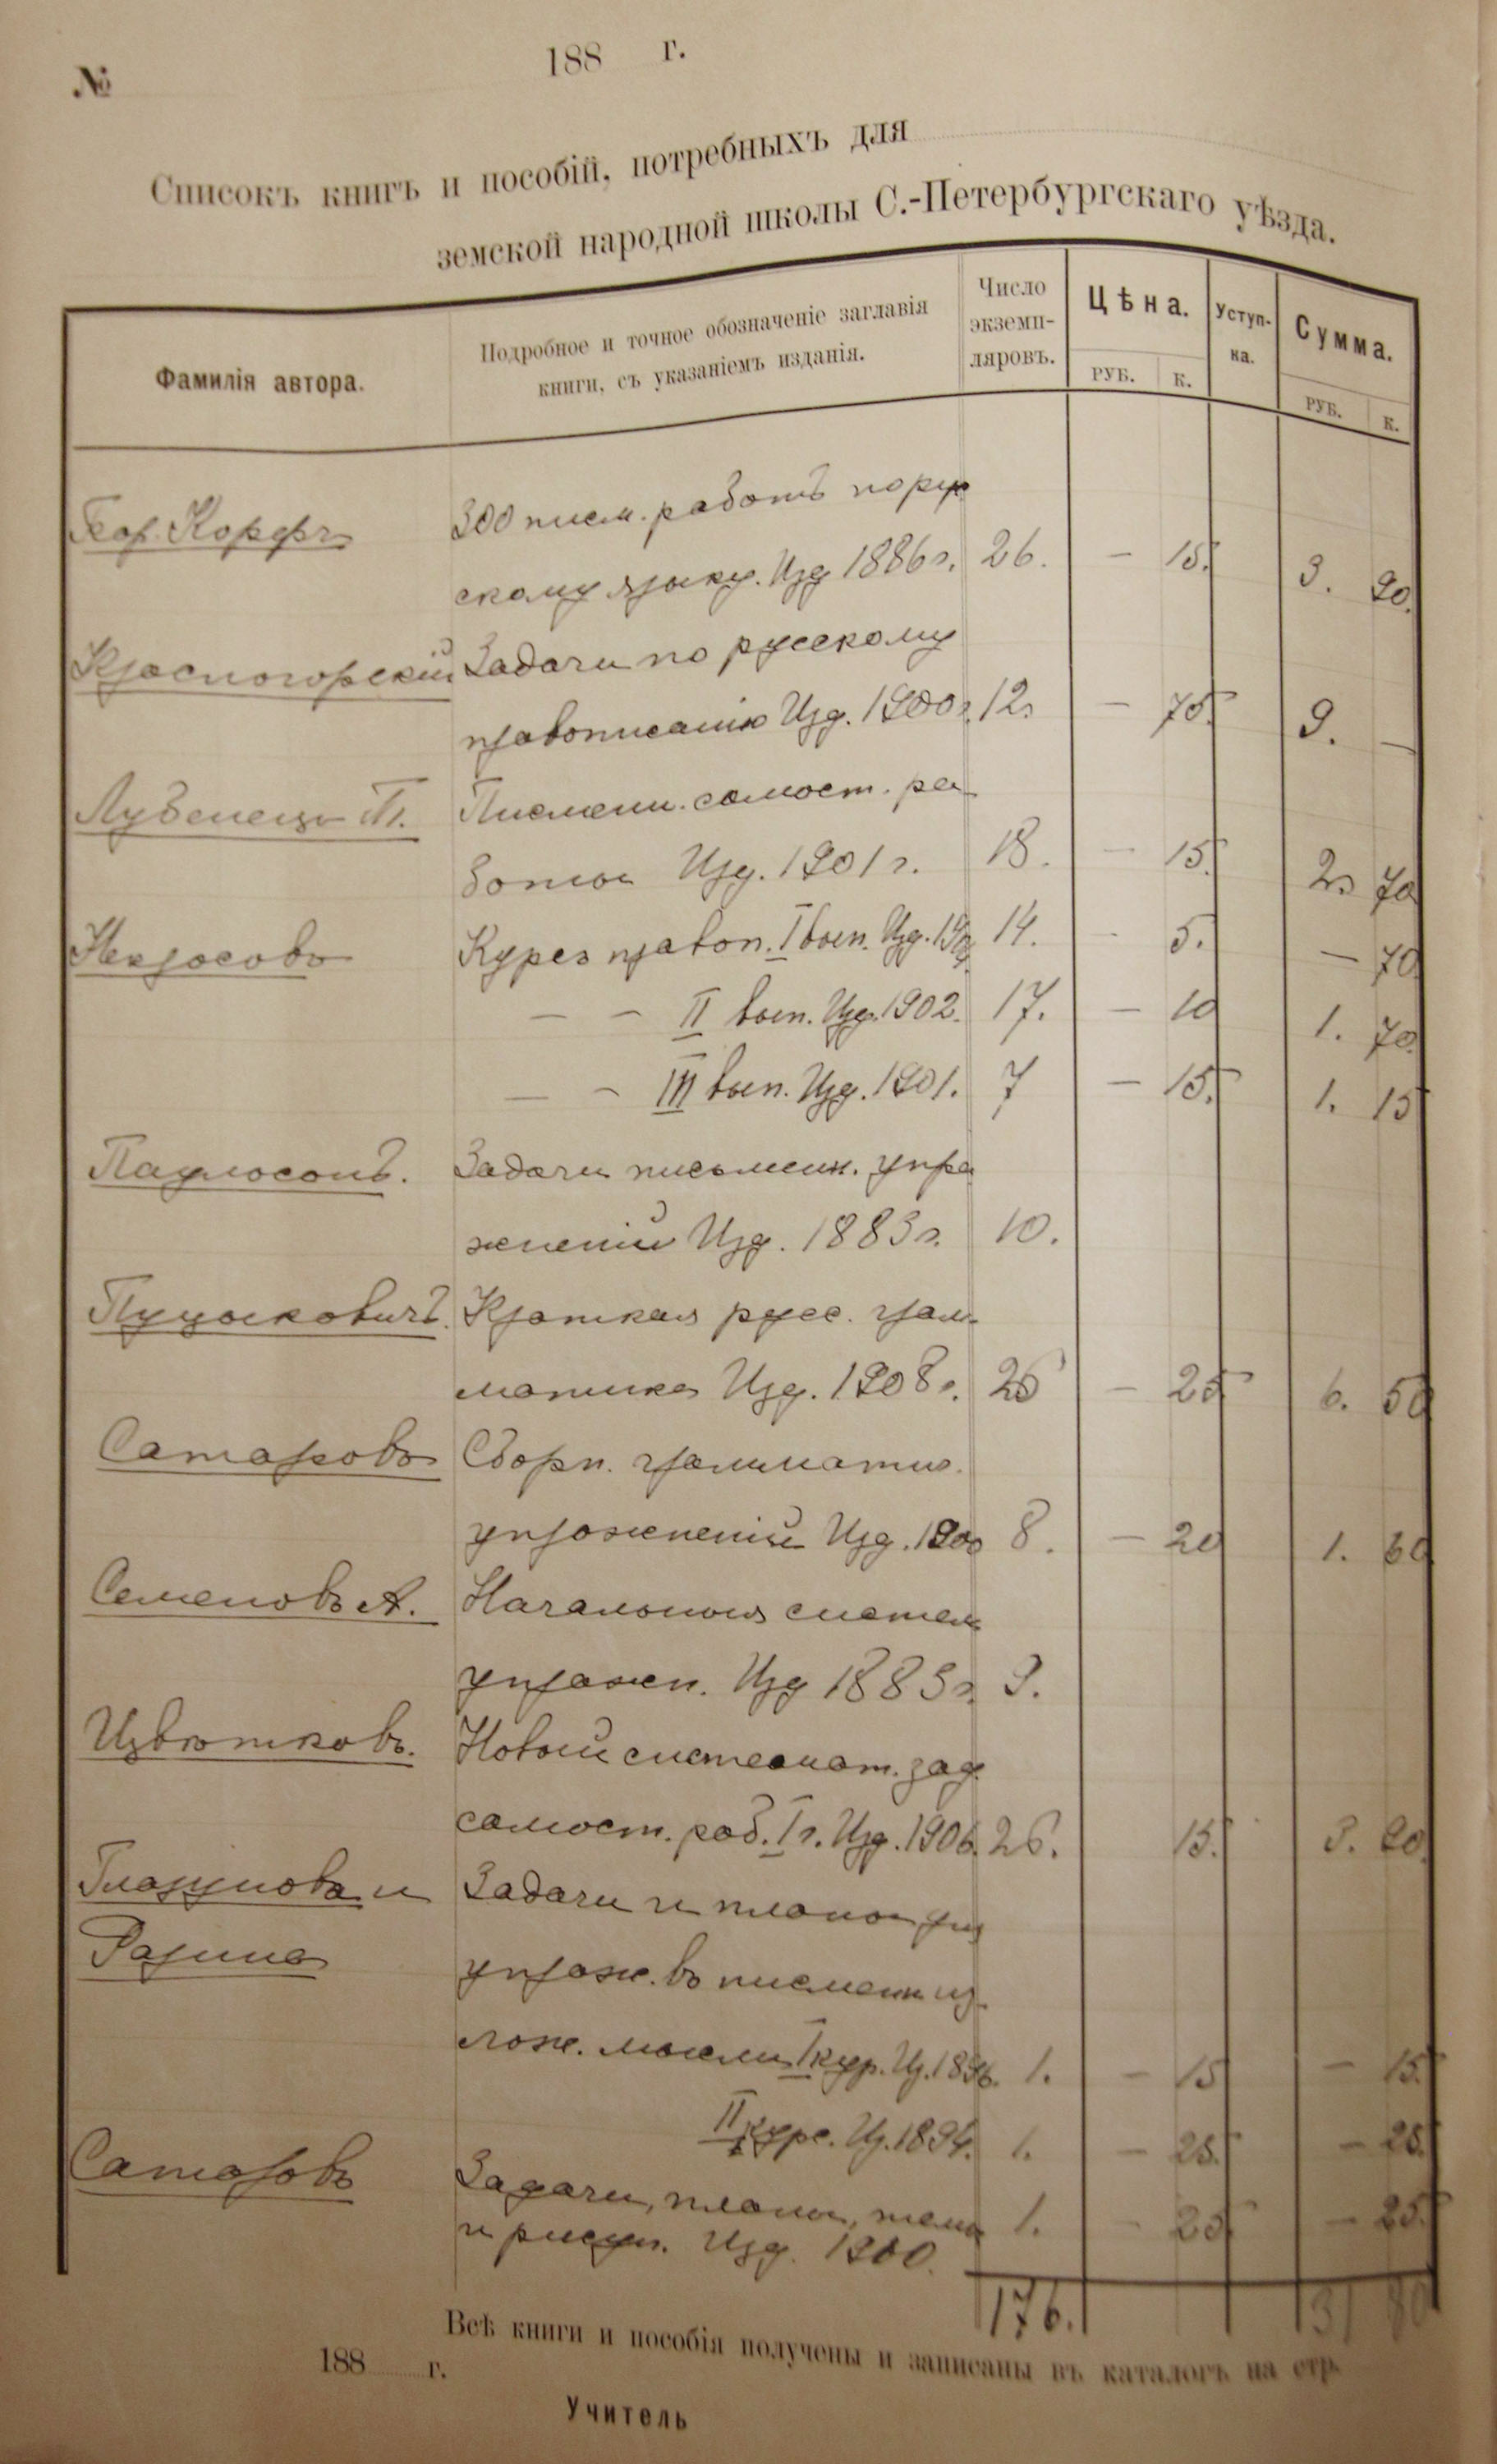 №
188 г.
Списокъ книгъ и пособій, потребныхъ для
земской народной школы С.-Петербургскаго уѣзда.
Фамилія автора.
Подробное и точное обозначеніе заглавія
книги, съ указаніемъ изданія.
Число
экземп-
ляровъ.
Цѣна.
РУБ. К.
Уступ-
ка.
Сумма.
РУБ. К.
Корфъ 300 писм. работъ по рус
скому языку. Изд 1886 г. 26. — 15. 3. 90.
Красногорскій Задачи по русскому
правописанію Изд. 1900 г. 12 — 75. 9. —
Лубенецъ Т. Писменн. самост. ра
боты Изд. 1901 г. 18. — 15. 2 70
Некрасовъ Курсъ правоп. I вып. Изд. 14. - 5. — 70
— — II вып. Изд. 1902. 17. — 10 1. 70.
— — III вып. Изд. 1901. 7 — 15. 1. 15
Паульсонъ. Задачи письменн. упра
жненій Изд. 1883 г. 10.
Пуцыковичъ. Краткая русс. грам
матика Изд. 1908 г. 26 — 25 6. 50
Сатаровъ Сборн. грамматич.
упражненій Изд. 1900 8. — 20 1. 60
Семеновъ А. Начальныя систем
упражн. Изд 1883 г. 9.
Цвѣтковъ. Новый системат. зад.
самост. раб. I г. Изд. 1906. 26. 15. 3. 90.
Глазунова и Задачи и планы для
Разина упраж. въ писменн из
лож. мысли I кур. Из. 1896. 1. — 15 — 15.
II курс. Из. 1894. 1. — 25. — 25.
Сатаровъ Задачи, планы, темы 1. — 25. — 25.
и рисун. Изд. 1900.
176. 31 80
Всѣ книги и пособія получены и записаны въ каталогъ на стр.
188 г.
Учитель